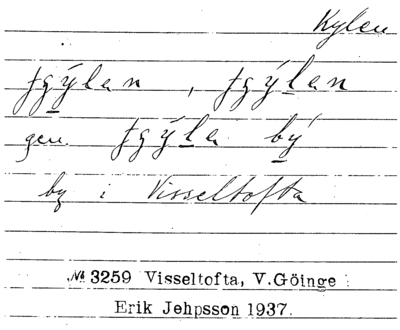 Kylen
tgýlan, tgýlan
gen. tgýla bý
by i Visseltofta
№ 3259 Visseltofta, V. Göinge
Erik Jehpsson 1937.